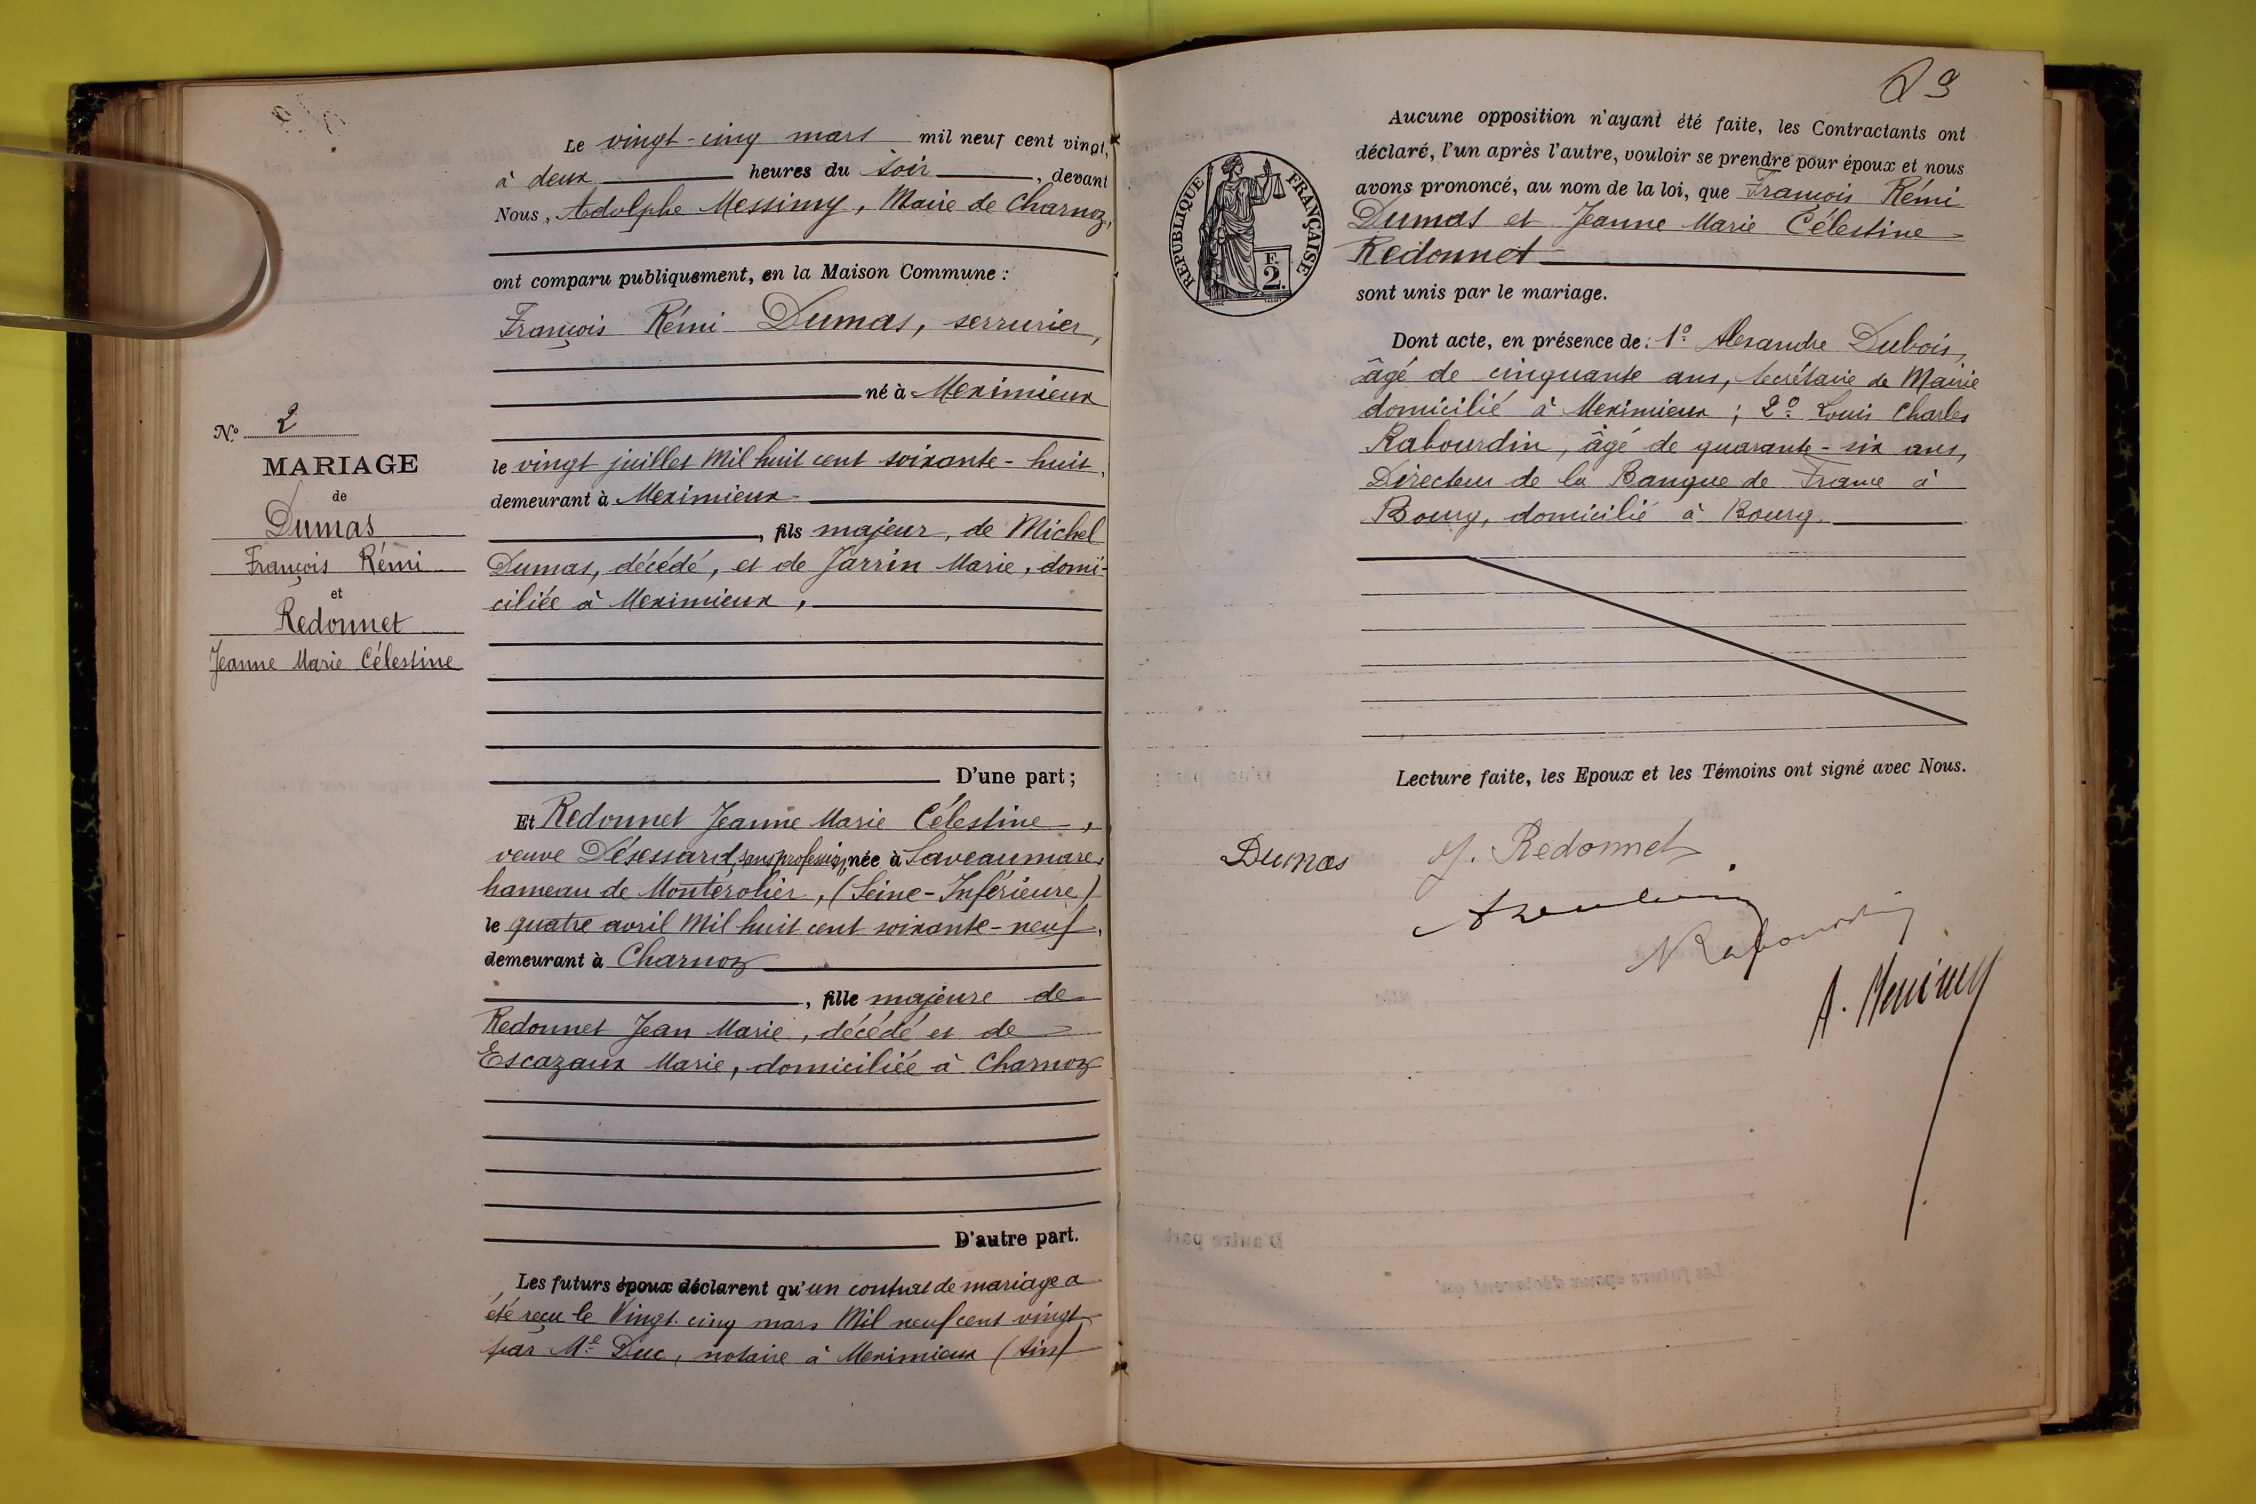 N.º 2
MARIAGE
de
Dumas
François Rémi
et
Redonnet
Jeanne Marie Célestine
Le vingt-cinq mars mil neuf cent vingt,
à deux heures du soir, devant
Nous, Adolphe Messimy, Maire de Charnoz,
ont comparu publiquement, en la Maison Commune :
François Rémi Dumas, serrurier,
né à Meximieux
le vingt juillet Mil huit cent soixante-huit,
demeurant à Meximieux
, fils majeur, de Michel
Dumas, décédé, et de Jarrin Marie, domi-
ciliée à Meximieux,
D'une part ;
Et Redonnet Jeanne Marie Célestine,
veuve Désessard, sans profession, née à Laveaumare,
hameau de Monterolier, (Seine-Inférieure)
le quatre avril Mil huit cent soixante-neuf,
demeurant à Charnoz
, fille majeure de
Redonnet Jean Marie, décédé et de
Escazaux Marie, domiciliée à Charnoz
D'autre part.
Les futurs époux déclarent qu'un contrat de mariage a
été reçu le Vingt-cinq mars Mil neuf cent vingt
par Me Duc, notaire à Meximieux (Ain)
29
REPUBLIQUE FRANÇAISE
F.
2.
Aucune opposition n'ayant été faite, les Contractants ont
déclaré, l'un après l'autre, vouloir se prendre pour époux et nous
avons prononcé, au nom de la loi, que François Rémi
Dumas et Jeanne Marie Célestine
Redonnet
sont unis par le mariage.
Dont acte, en présence de : 1º Alexandre Dubois,
âgé de cinquante ans, Secrétaire de Mairie
domicilié à Meximieux ; 2º Louis Charles
Rabourdin, âgé de quarante-six ans,
Directeur de la Banque de France à
Bourg, domicilié à Bourg.
Lecture faite, les Epoux et les Témoins ont signé avec Nous.
Dumas
J. Redonnet
Rabourdin
A. Messimy